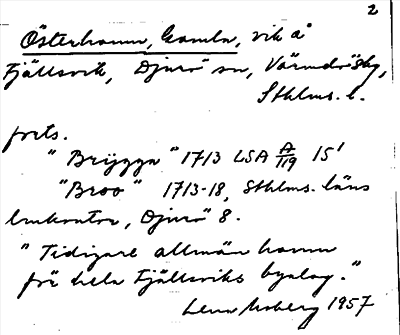 2
Österhamn, Gamla, vik å
Fjällsvik, Djurö sn, Värmdö skg,
Sthlms. l.
forts.
"Brÿggja" 1713 LSA A/119 15¹
"Broo" 1713-18, Sthlms. läns
lmkontor, Djurö 8.
"Tidigare allmän hamn
för hela Fjällsviks byalag."
Lena Moberg 1957